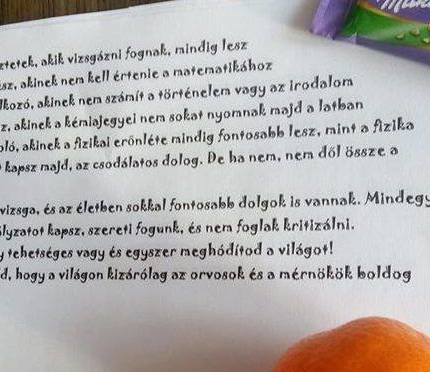 Milka
ztetek, akik vizsgázni fognak, mindig lesz
sz, akinek nem kell értenie a matematikához
lkozó, akinek nem számít a történelem vagy az irodalom
z, akinek a kémiajegyei nem sokat nyomnak majd a latban
oló, akinek a fizikai erőnléte mindig fontosabb lesz, mint a fizika
kapsz majd, az csodálatos dolog. De ha nem, nem dől össze a
vizsga, és az életben sokkal fontosabb dolgok is vannak. Mindegy
lyzatot kapsz, szereti fogunk, és nem foglak kritizálni.
y tehetséges vagy és egyszer meghódítod a világot!
d, hogy a világon kizárólag az orvosok és a mérnökök boldog